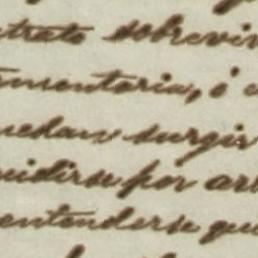 trato sobreviv
mentaria, ó
uedan surgir
uidirse por ar
entenderse que